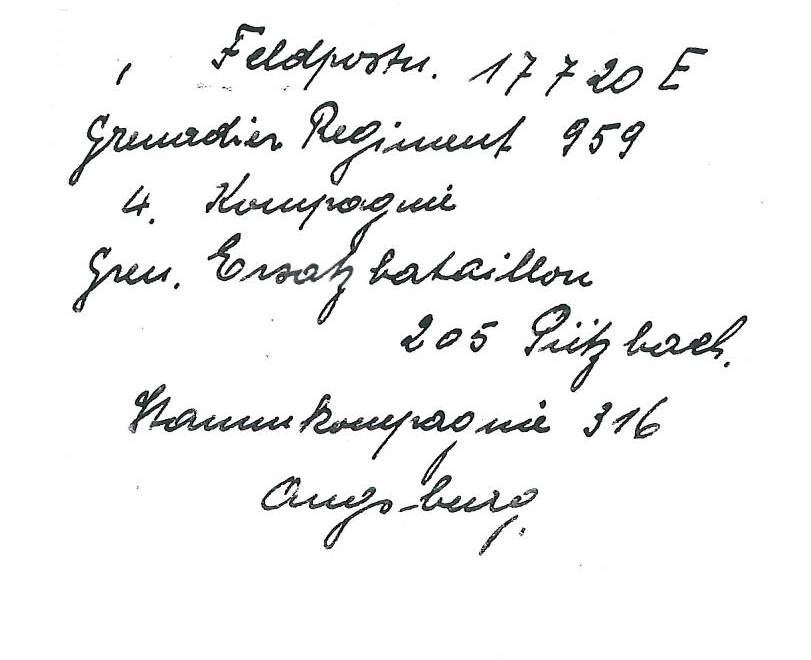 Feldpostn. 17720 E
Grenadier Regiment 959
4. Kompagnie
Gren. Ersatzbataillon
205 Pützbach.
Stammkompagnie 316
Augsburg.